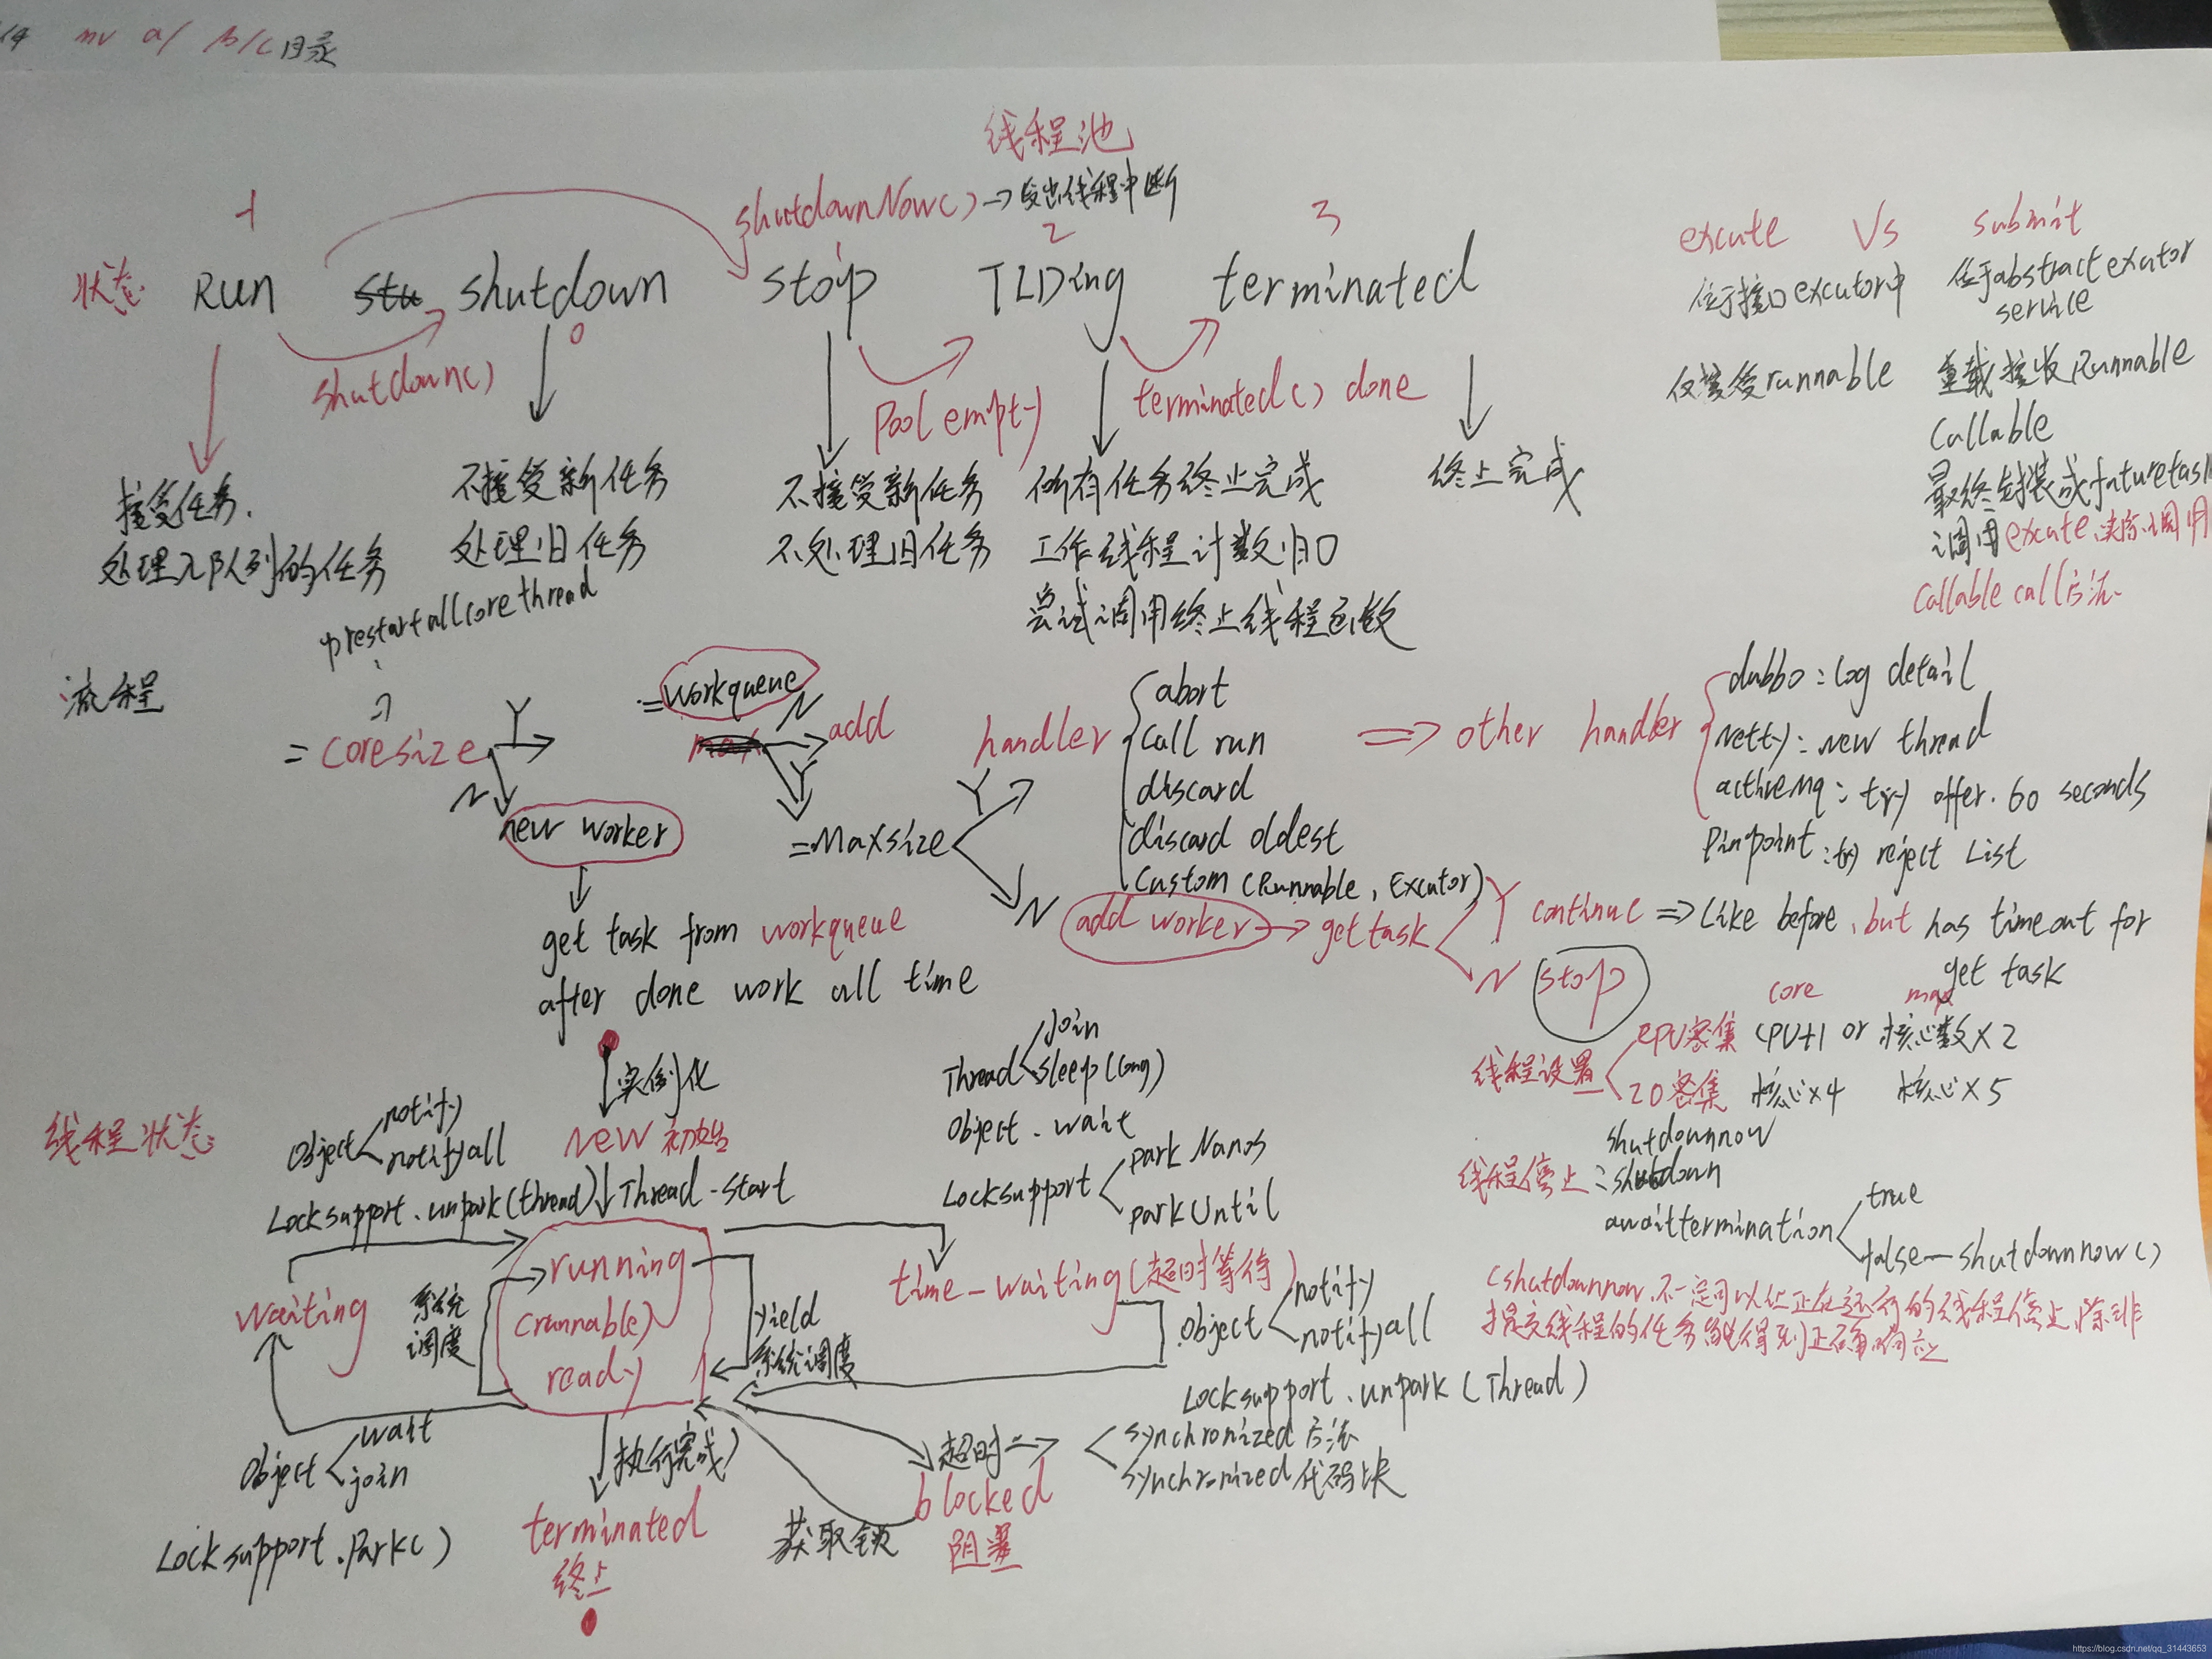 mv a/ b/c目录
线程池
shutdownNow() → 发出线程中断
-1
1
2
3
状态 Run shutdown stop TIDing terminated
0
shutdown()
Pool empty
terminated() done
接受任务.
处理入队列的任务
不接受新任务
处理旧任务
不接受新任务
不处理旧任务
所有任务终止完成
工作线程计数归0
尝试调用终止线程函数
终止完成
excute Vs submit
位于接口excutor中
位于abstractexcutor
service
仅接受runnable
重载接收Runnable
Callable
最终封装成futuretask
调用excute,实际调用
Callable call方法
prestartallcorethread
流程
= coresize Y
N
new worker
get task from workqueue
after done work all time
= workqueue
N add
Y
= Maxsize
Y
N
handler
abort
Call run
discard
discard oldest
Custom (Runnable, Excutor)
⇒ other handler
dubbo : log detail
Netty : new thread
activeMq : try offer. 60 seconds
Pinpoint : try reject List
add worker → get task
Y continue ⇒ Like before, but has timeout for
get task
N stop
core max
线程设置
CPU密集 CPU+1 or 核心数×2
IO密集 核心×4 核心×5
线程停止 :
shutdownnow
shutdown
awaittermination
true
false — shutdownnow()
(shutdownnow,不一定可以让正在运行的线程停止,除非
提交线程的任务能得到正确响应
线程状态
实例化
NEW 初始
Thread.start
Object
notify
notifyall
Locksupport.unpark(thread)
Thread
Join
sleep(long)
Object.wait
Locksupport
parkNanos
parkUntil
waiting
系统
调度
running
(runnable)
ready
yield
系统调度
time-waiting(超时等待)
Object
notify
notifyall
Locksupport.unpark(Thread)
Object
wait
join
Locksupport.Park()
执行完成
terminated
终止
获取锁
超时 ⇒
synchronized 方法
synchronized 代码块
blocked
阻塞
https://blog.csdn.net/qq_31443653